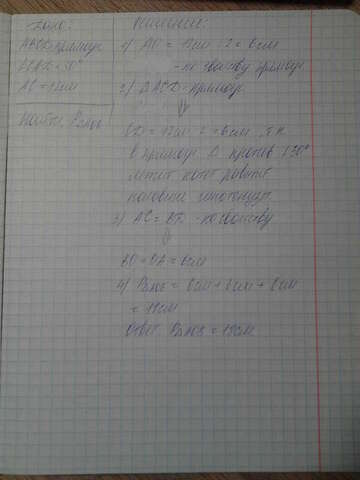 Дано:
ABCD прямоуг.
∠CAD = 30°
AC = 12см
Найти: Pаов
Решение:
1) AO = 12см : 2 = 6см
- по свойству прямоуг.
2) △ACD - прямоуг.
⇓
CD = 12см : 2 = 6см, т.к
в прямоуг. △ против ∠30°
лежит катет равный
половине гипотенузы.
3) AC = BD - по свойству
⇓
BO = OA = 6см
4) Pаов = 6см + 6см + 6см
= 18см
Ответ: Pаов = 18см